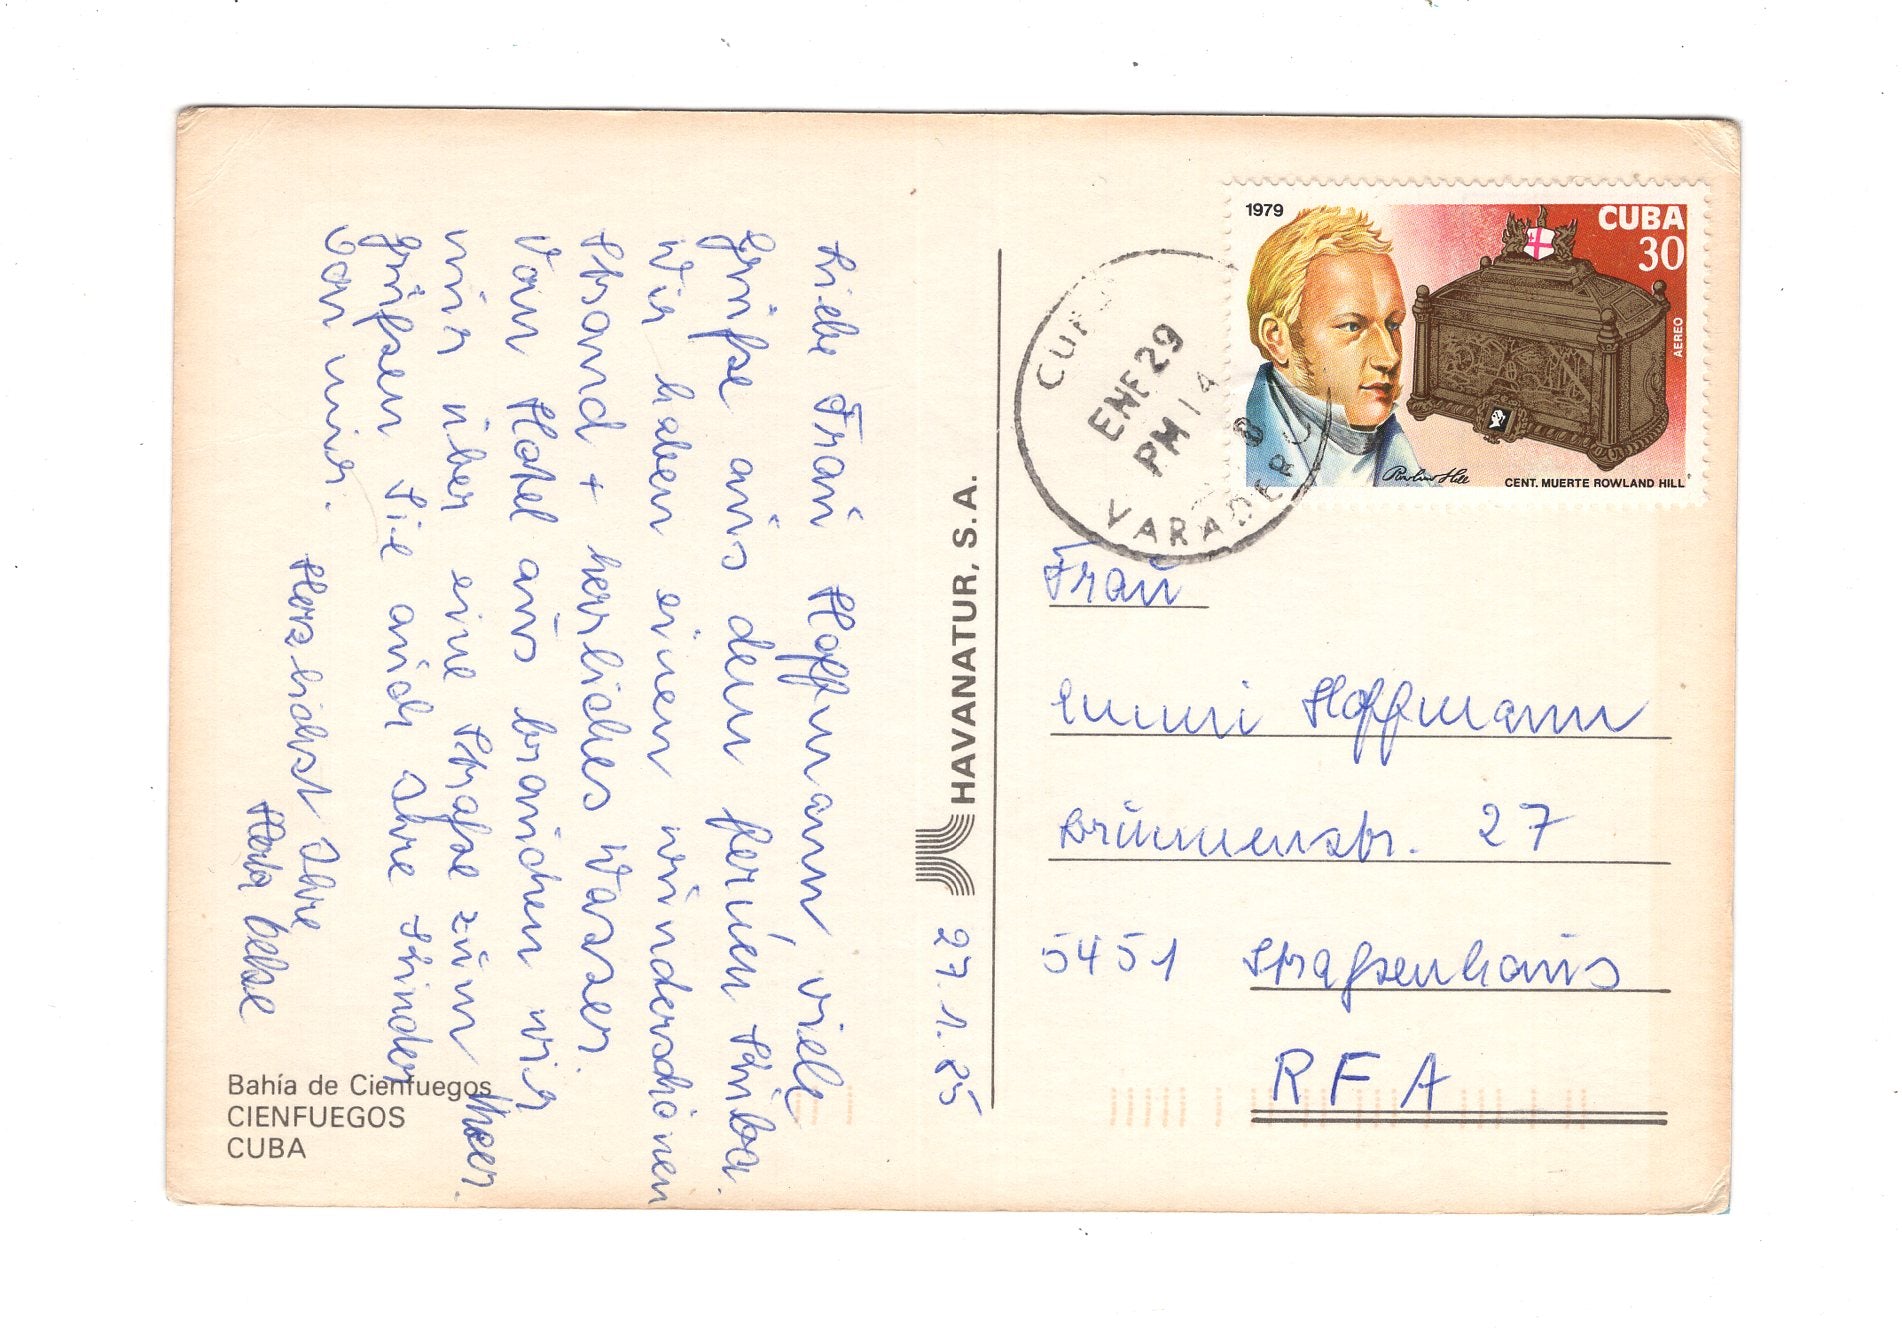 27.1.85
Liebe Frau Hoffmann viele
Grüße aus dem fernen Kuba.
Wir haben einen wunderschönen
Strand + herliches Wasser.
Vom Hotel aus brauchen wir
nur über eine Straße zum Meer.
Grüßen Sie auch Ihre Kinder
von mir.
Herzlichst Ihre
Herta
HAVANATUR, S.A.
Bahía de Cienfuegos
CIENFUEGOS
CUBA
1979
CUBA
30
AEREO
Rowland Hill
CENT. MUERTE ROWLAND HILL
CUBA
ENE 29
PM 14
VARADERO
Frau
Emmi Hoffmann
Brunnenstr. 27
5451 Straßenhaus
RFA